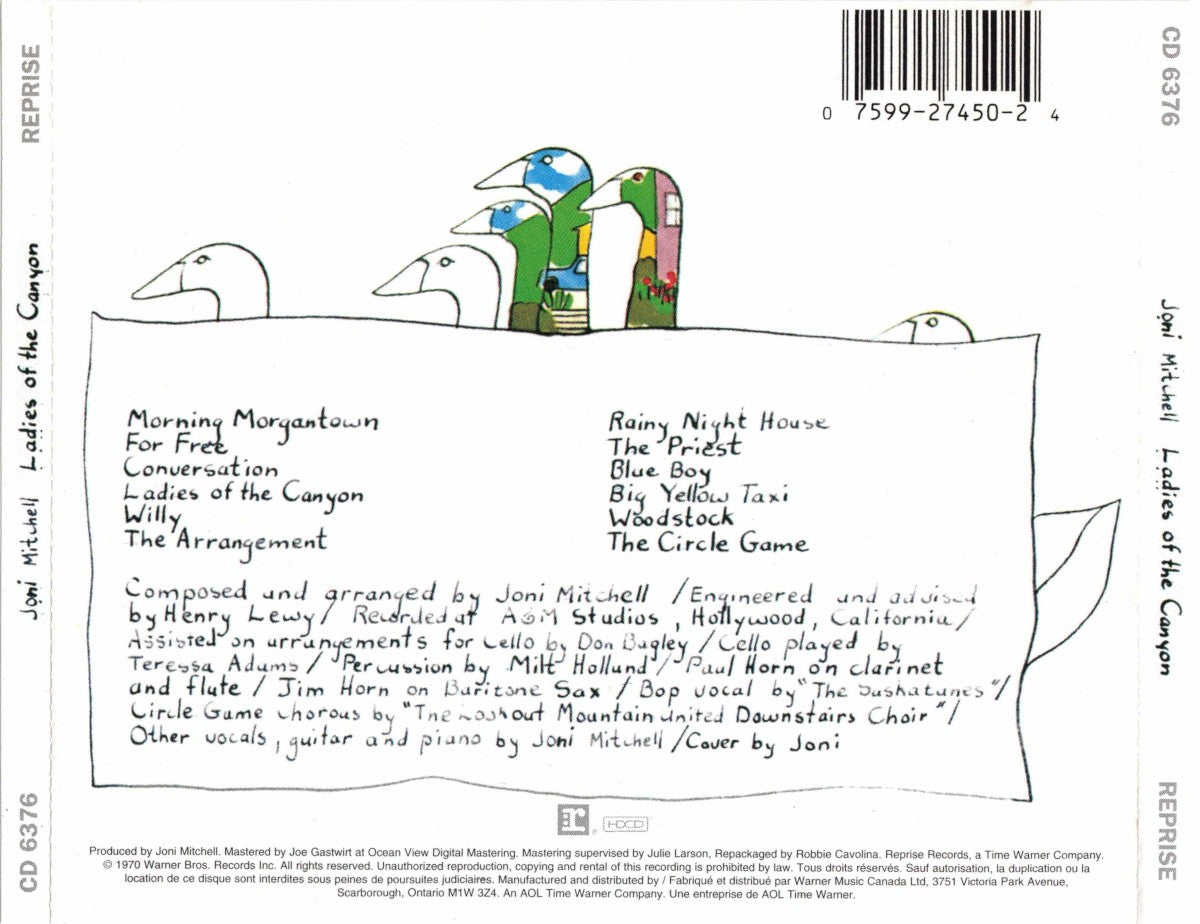 REPRISE
Joni Mitchell Ladies of the Canyon
CD 6376
0 7599-27450-2 4
Morning Morgantown
For Free
Conversation
Ladies of the Canyon
Willy
The Arrangement
Rainy Night House
The Priest
Blue Boy
Big Yellow Taxi
Woodstock
The Circle Game
Composed and arranged by Joni Mitchell / Engineered and advised
by Henry Lewy / Recorded at A&M Studios, Hollywood, California /
Assisted on arrangements for Cello by Don Bagley / Cello played by
Teressa Adams / Percussion by Milt Holland / Paul Horn on clarinet
and flute / Jim Horn on Baritone Sax / Bop vocal by "The Saskatunes" /
Circle Game chorous by "The Lookout Mountain United Downstairs Choir" /
Other vocals, guitar and piano by Joni Mitchell / Cover by Joni
r
HDCD
Produced by Joni Mitchell. Mastered by Joe Gastwirt at Ocean View Digital Mastering. Mastering supervised by Julie Larson, Repackaged by Robbie Cavolina. Reprise Records, a Time Warner Company.
© 1970 Warner Bros. Records Inc. All rights reserved. Unauthorized reproduction, copying and rental of this recording is prohibited by law. Tous droits réservés. Sauf autorisation, la duplication ou la
location de ce disque sont interdites sous peines de poursuites judiciaires. Manufactured and distributed by / Fabriqué et distribué par Warner Music Canada Ltd, 3751 Victoria Park Avenue,
Scarborough, Ontario M1W 3Z4. An AOL Time Warner Company. Une entreprise de AOL Time Warner.
CD 6376
Joni Mitchell Ladies of the Canyon
REPRISE